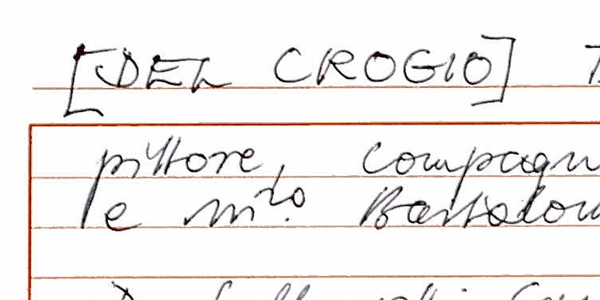 [DEL CROGIO]
pittore, compagn
e m.ro Bartolom